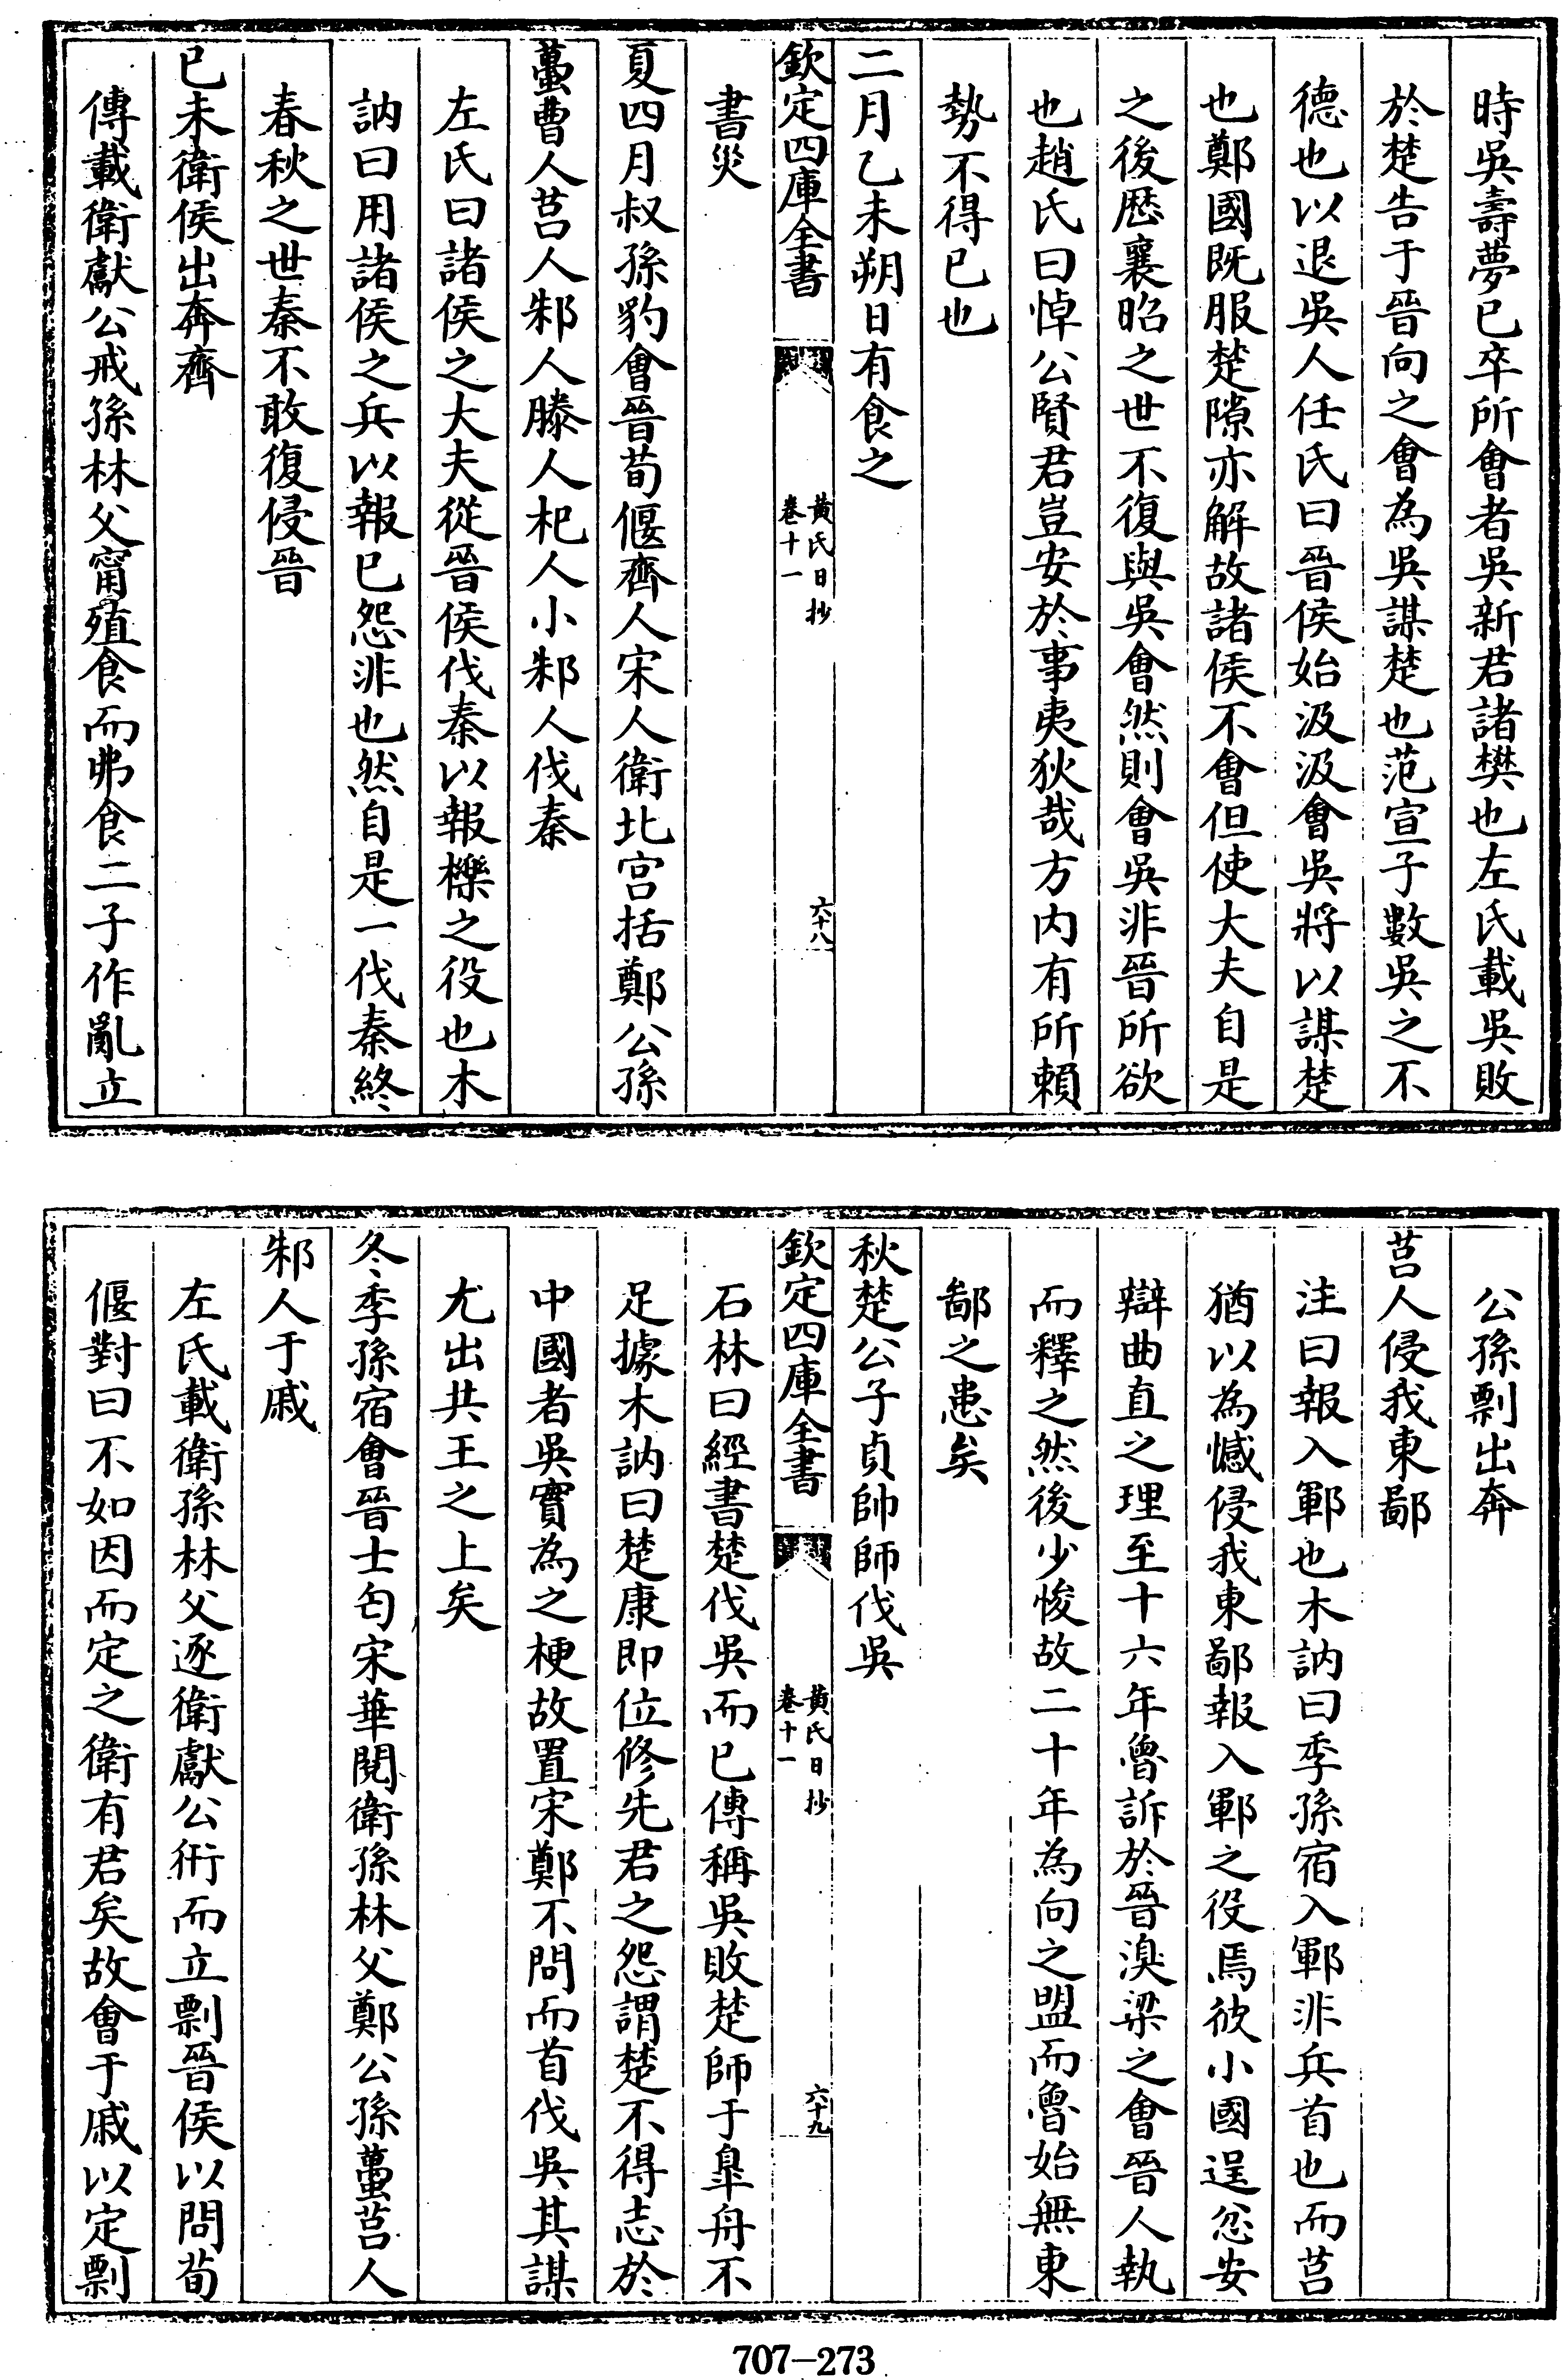 時吳壽夢已卒所會者吳新君諸樊也左氏載吳敗
於楚告于晉向之會為吳謀楚也范宣子數吳之不
德也以退吳人任氏曰晉侯始汲汲會吳將以謀楚
也鄭國既服楚隙亦解故諸侯不會但使大夫自是
之後歴襄昭之世不復與吳會然則會吳非晉所欲
也趙氏曰悼公賢君豈安於事夷狄哉方内有所賴
勢不得已也
二月乙未朔日有食之
欽定四庫全書
黄氏日抄
卷十一
六十八
書災
夏四月叔孫豹會晉荀偃齊人宋人衛北宫括鄭公孫
蠆曹人莒人邾人滕人杞人小邾人伐秦
左氏曰諸侯之大夫從晉侯伐秦以報櫟之役也木
訥曰用諸侯之兵以報已怨非也然自是一伐秦終
春秋之世秦不敢復侵晉
已未衛侯出奔齊
傳載衛獻公戒孫林父甯殖食而弗食二子作亂立
公孫剽出奔
莒人侵我東鄙
注曰報入鄆也木訥曰季孫宿入鄆非兵首也而莒
猶以為憾侵我東鄙報入鄆之役焉彼小國逞忿安
辯曲直之理至十六年魯訴於晉溴梁之會晉人執
而釋之然後少悛故二十年為向之盟而魯始無東
鄙之患矣
秋楚公子貞帥師伐吳
欽定四庫全書
黄氏日抄
卷十一
六十九
石林曰經書楚伐吳而已傳稱吳敗楚師于皐舟不
足據木訥曰楚康即位修先君之怨謂楚不得志於
中國者吳實為之梗故置宋鄭不問而首伐吳其謀
尤出共王之上矣
冬季孫宿會晉士匄宋華閱衛孫林父鄭公孫蠆莒人
邾人于戚
左氏載衛孫林父逐衛獻公衎而立剽晉侯以問荀
偃對曰不如因而定之衛有君矣故會于戚以定剽
707-273